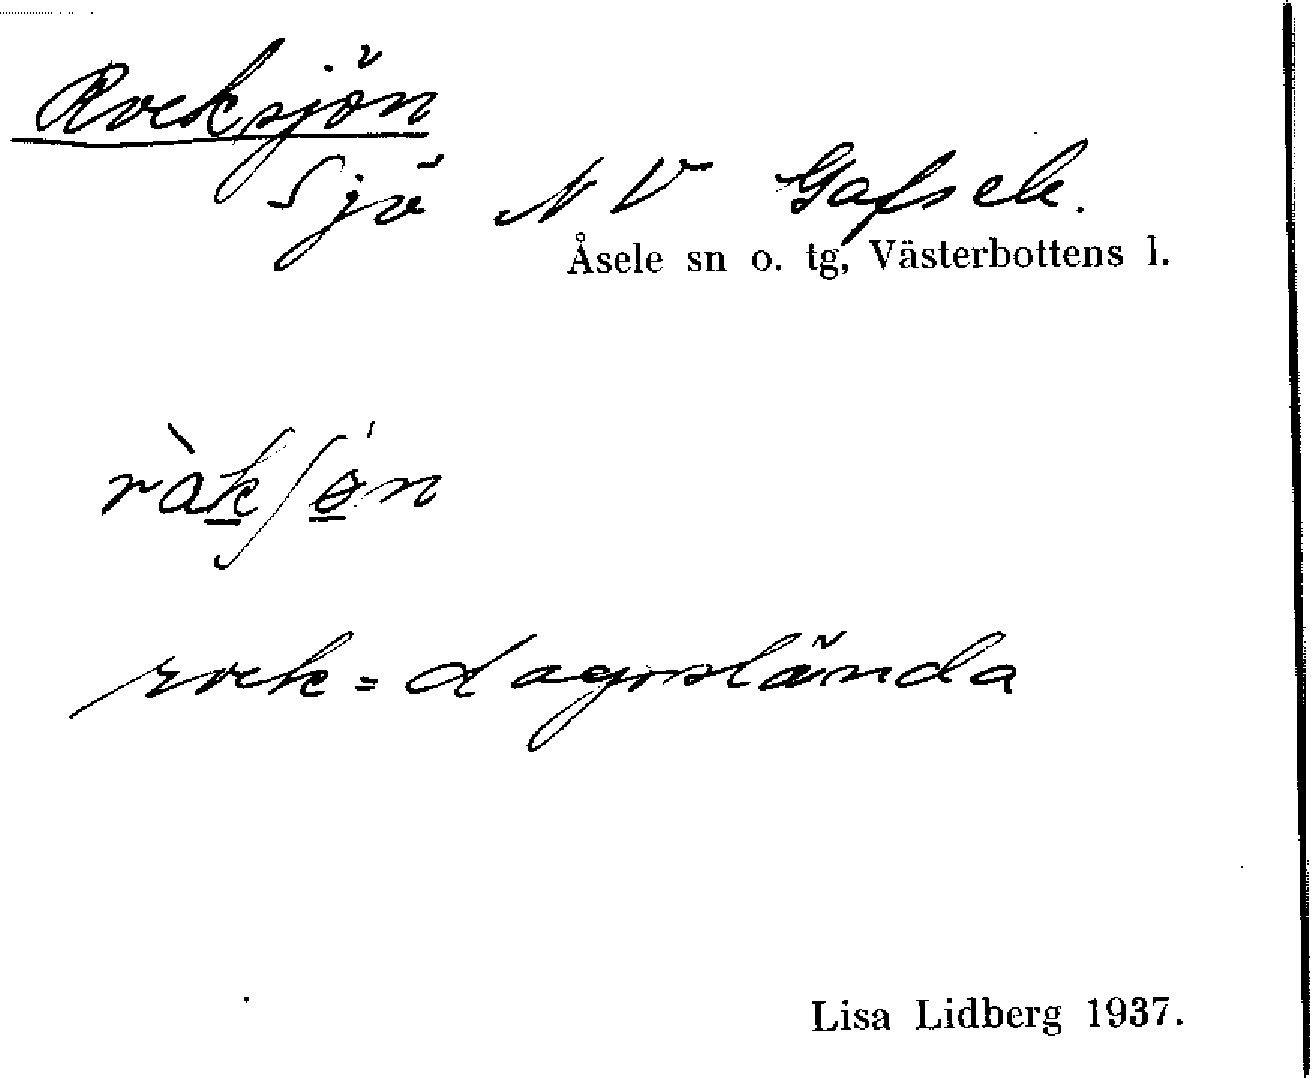 Rocksjön
Sjö NV Gafsele.
Åsele sn o. tg, Västerbottens l.
ràkʃø̀n
rock = dagslända
Lisa Lidberg 1937.